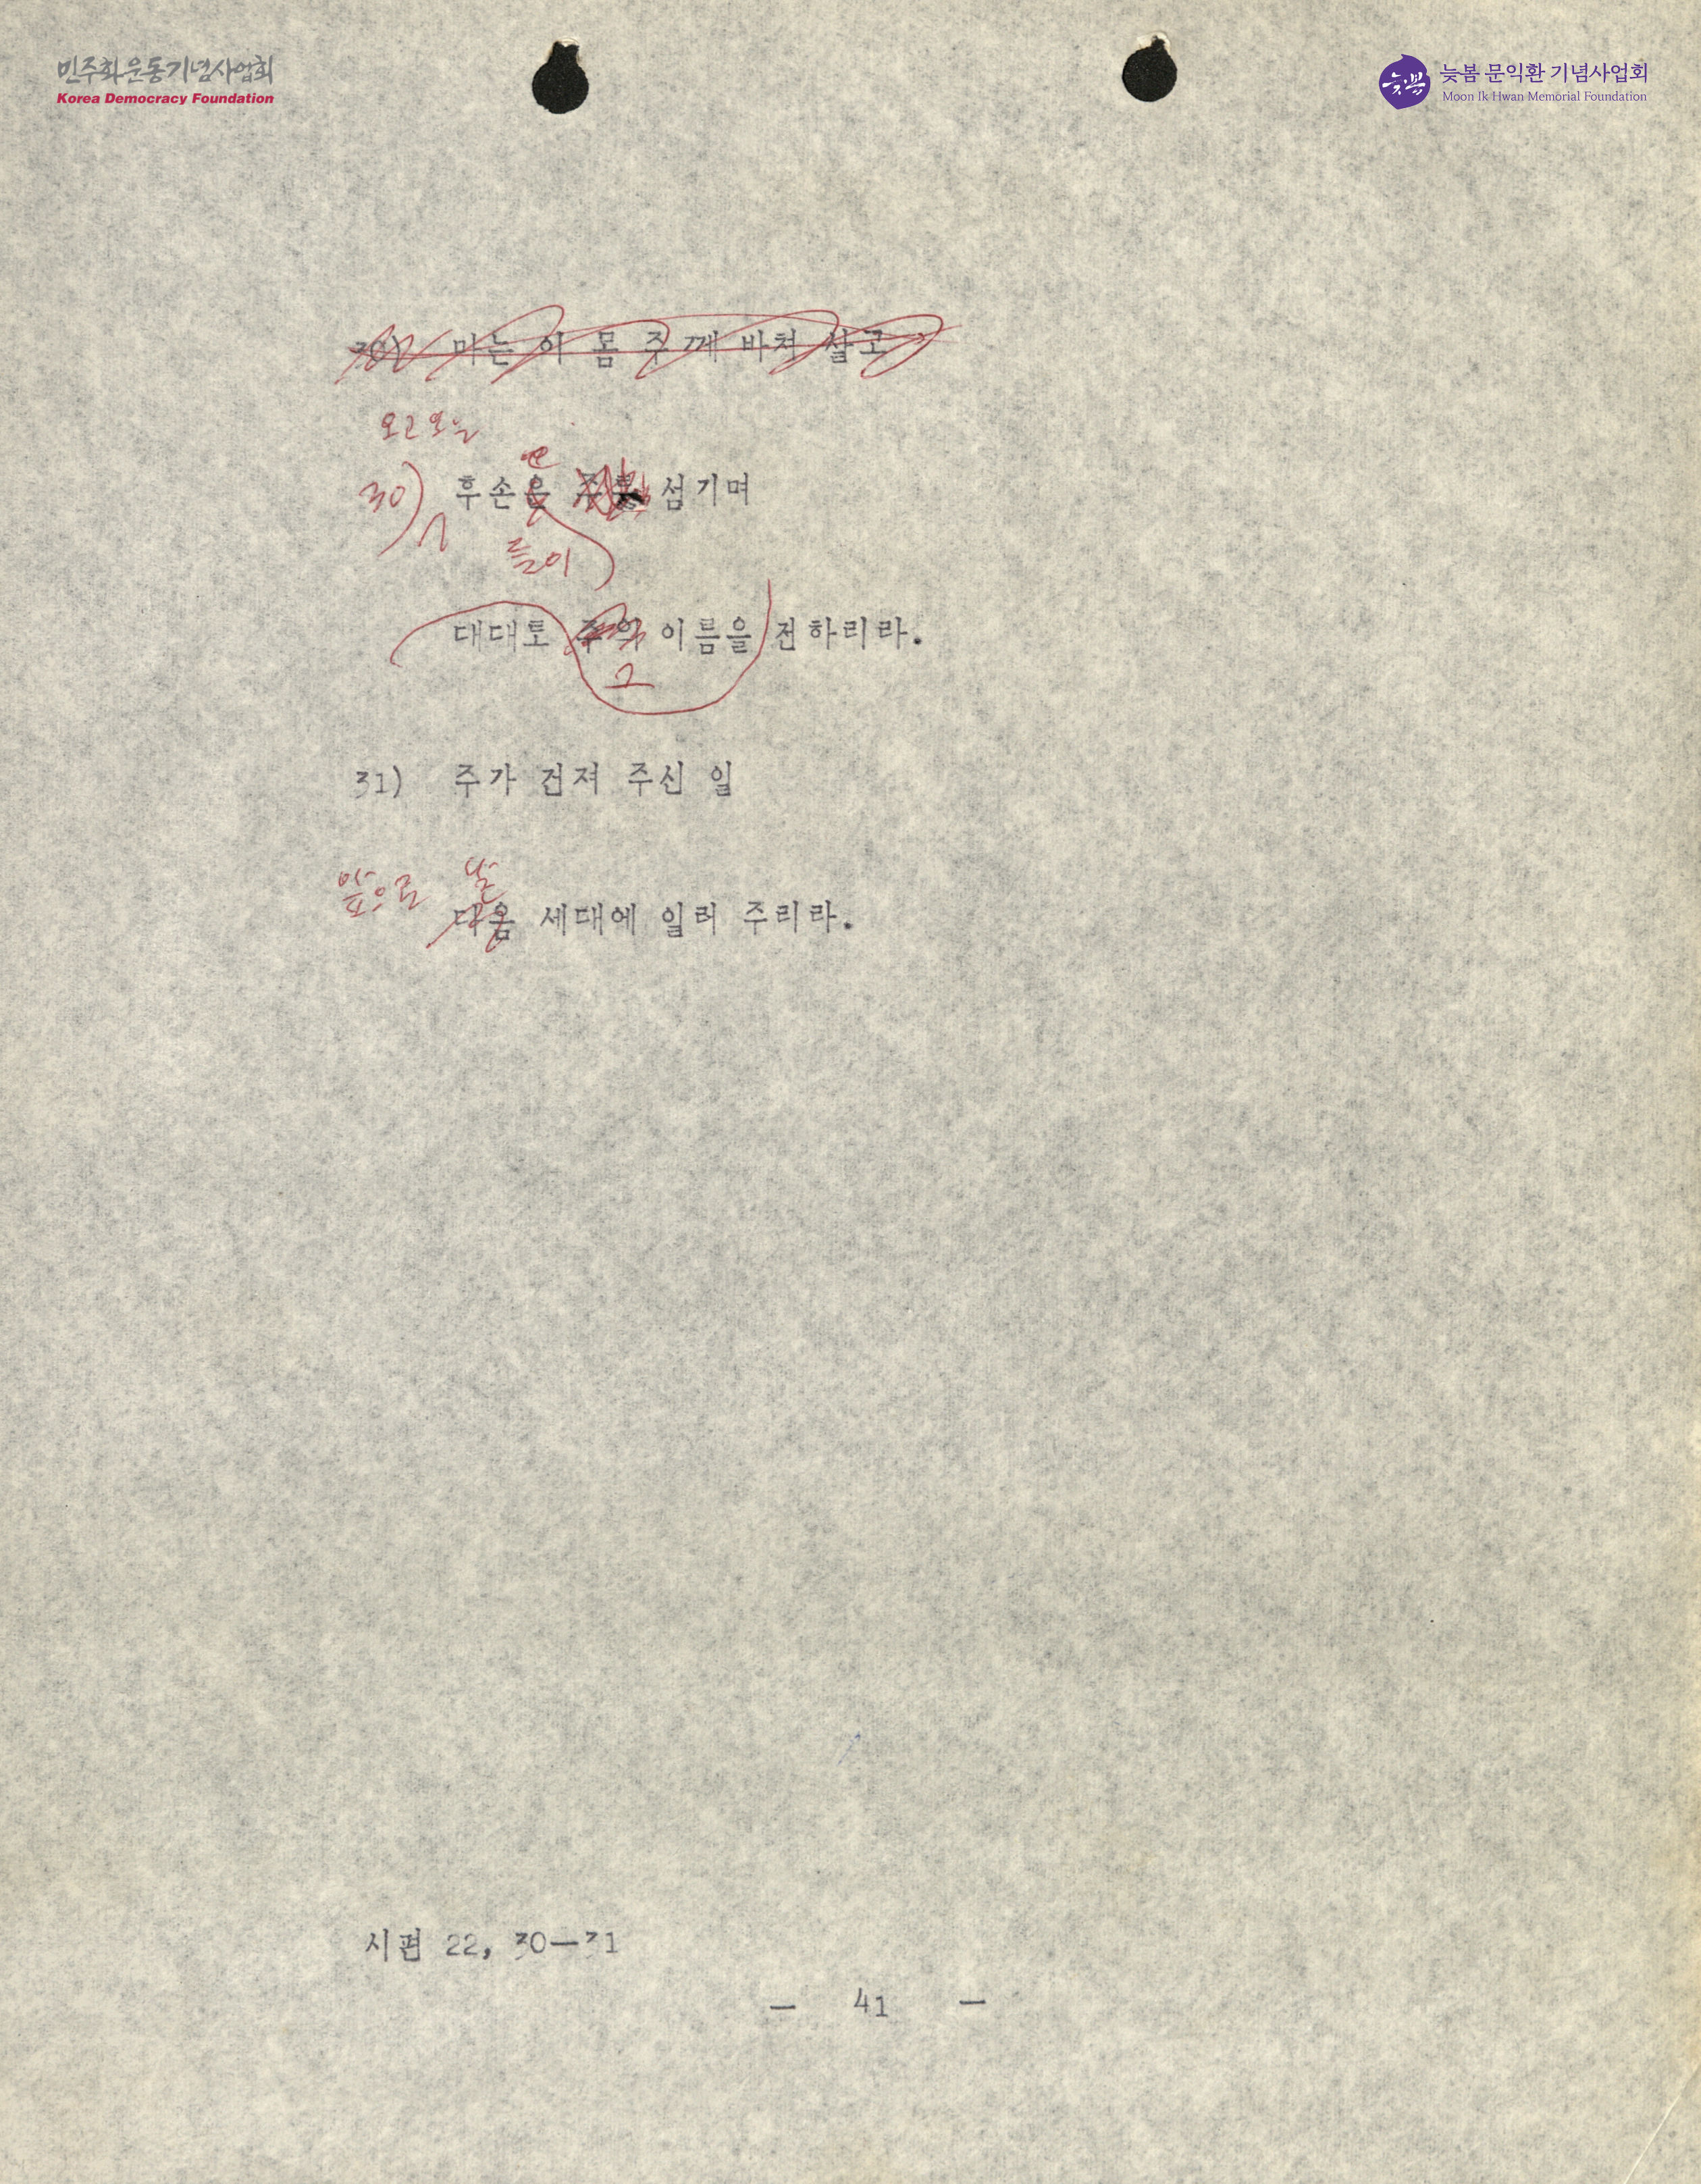 민주화운동기념사업회
Korea Democracy Foundation
늦봄 문익환 기념사업회
Moon Ik Hwan Memorial Foundation
30) 마는 이 몸 주께 바쳐 살고
오고 오는
30) 후손은 섬기며
들이
대대로 주의 이름을 전하리라.
그
31) 주가 건져 주신 일
앞으로 날
다음 세대에 일러 주리라.
시편 22, 30—31
— 41 —